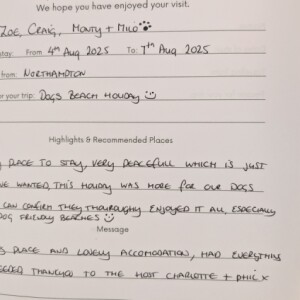 We hope you have enjoyed your visit.
ZOE, CRAIG, MONTY + MILO
stay: From 4th AUG 2025 To: 7th AUG 2025
from: NORTHAMPTON
for your trip: DOGS BEACH HOLIDAY
Highlights & Recommended Places
PLACE TO STAY, VERY PEACEFULL WHICH IS JUST
WE WANTED, THIS HOLIDAY WAS MORE FOR OUR DOGS
CAN CONFIRM THEY THOUROUGHLY ENJOYED IT ALL, ESPECIALLY
DOG FRIENDLY BEACHES
Message
PLACE AND LOVELY ACCOMODATION, HAD EVERYTHING
TO THE HOST CHARLOTTE + PHIL X